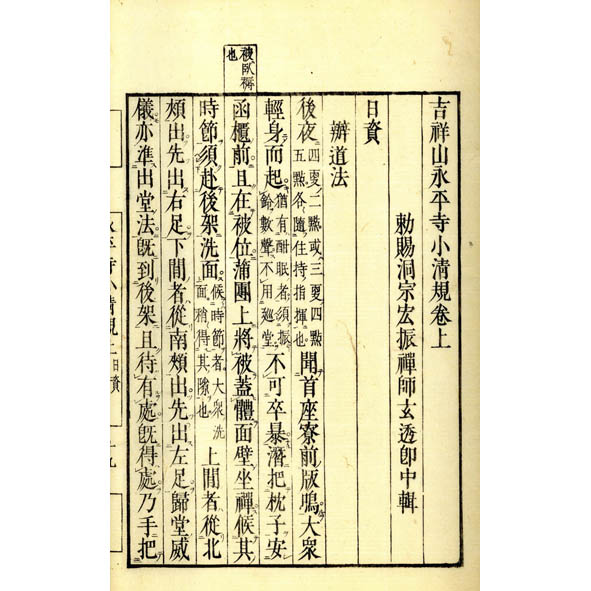 吉祥山永平寺小清規卷上
勅賜洞宗宏振禪師玄透卽中輯
日資
辨道法
後夜四更二點或三更四點五點各隨住持指揮也聞首座寮前版鳴大衆
輕身而起猶有酣眠者須振鈴數聲不用廵堂不可卒暴潛把枕子安
函櫃前且在被位蒲團上將被蓋體面壁坐禪候其
時節須赴後架洗面候時節者大衆洗面稍得其隙也上間者從北
頰出先出右足下間者從南頰出先出左足歸堂威
儀亦準出堂法旣到後架且待有處旣得處乃手把
永平寺小清規上 日資